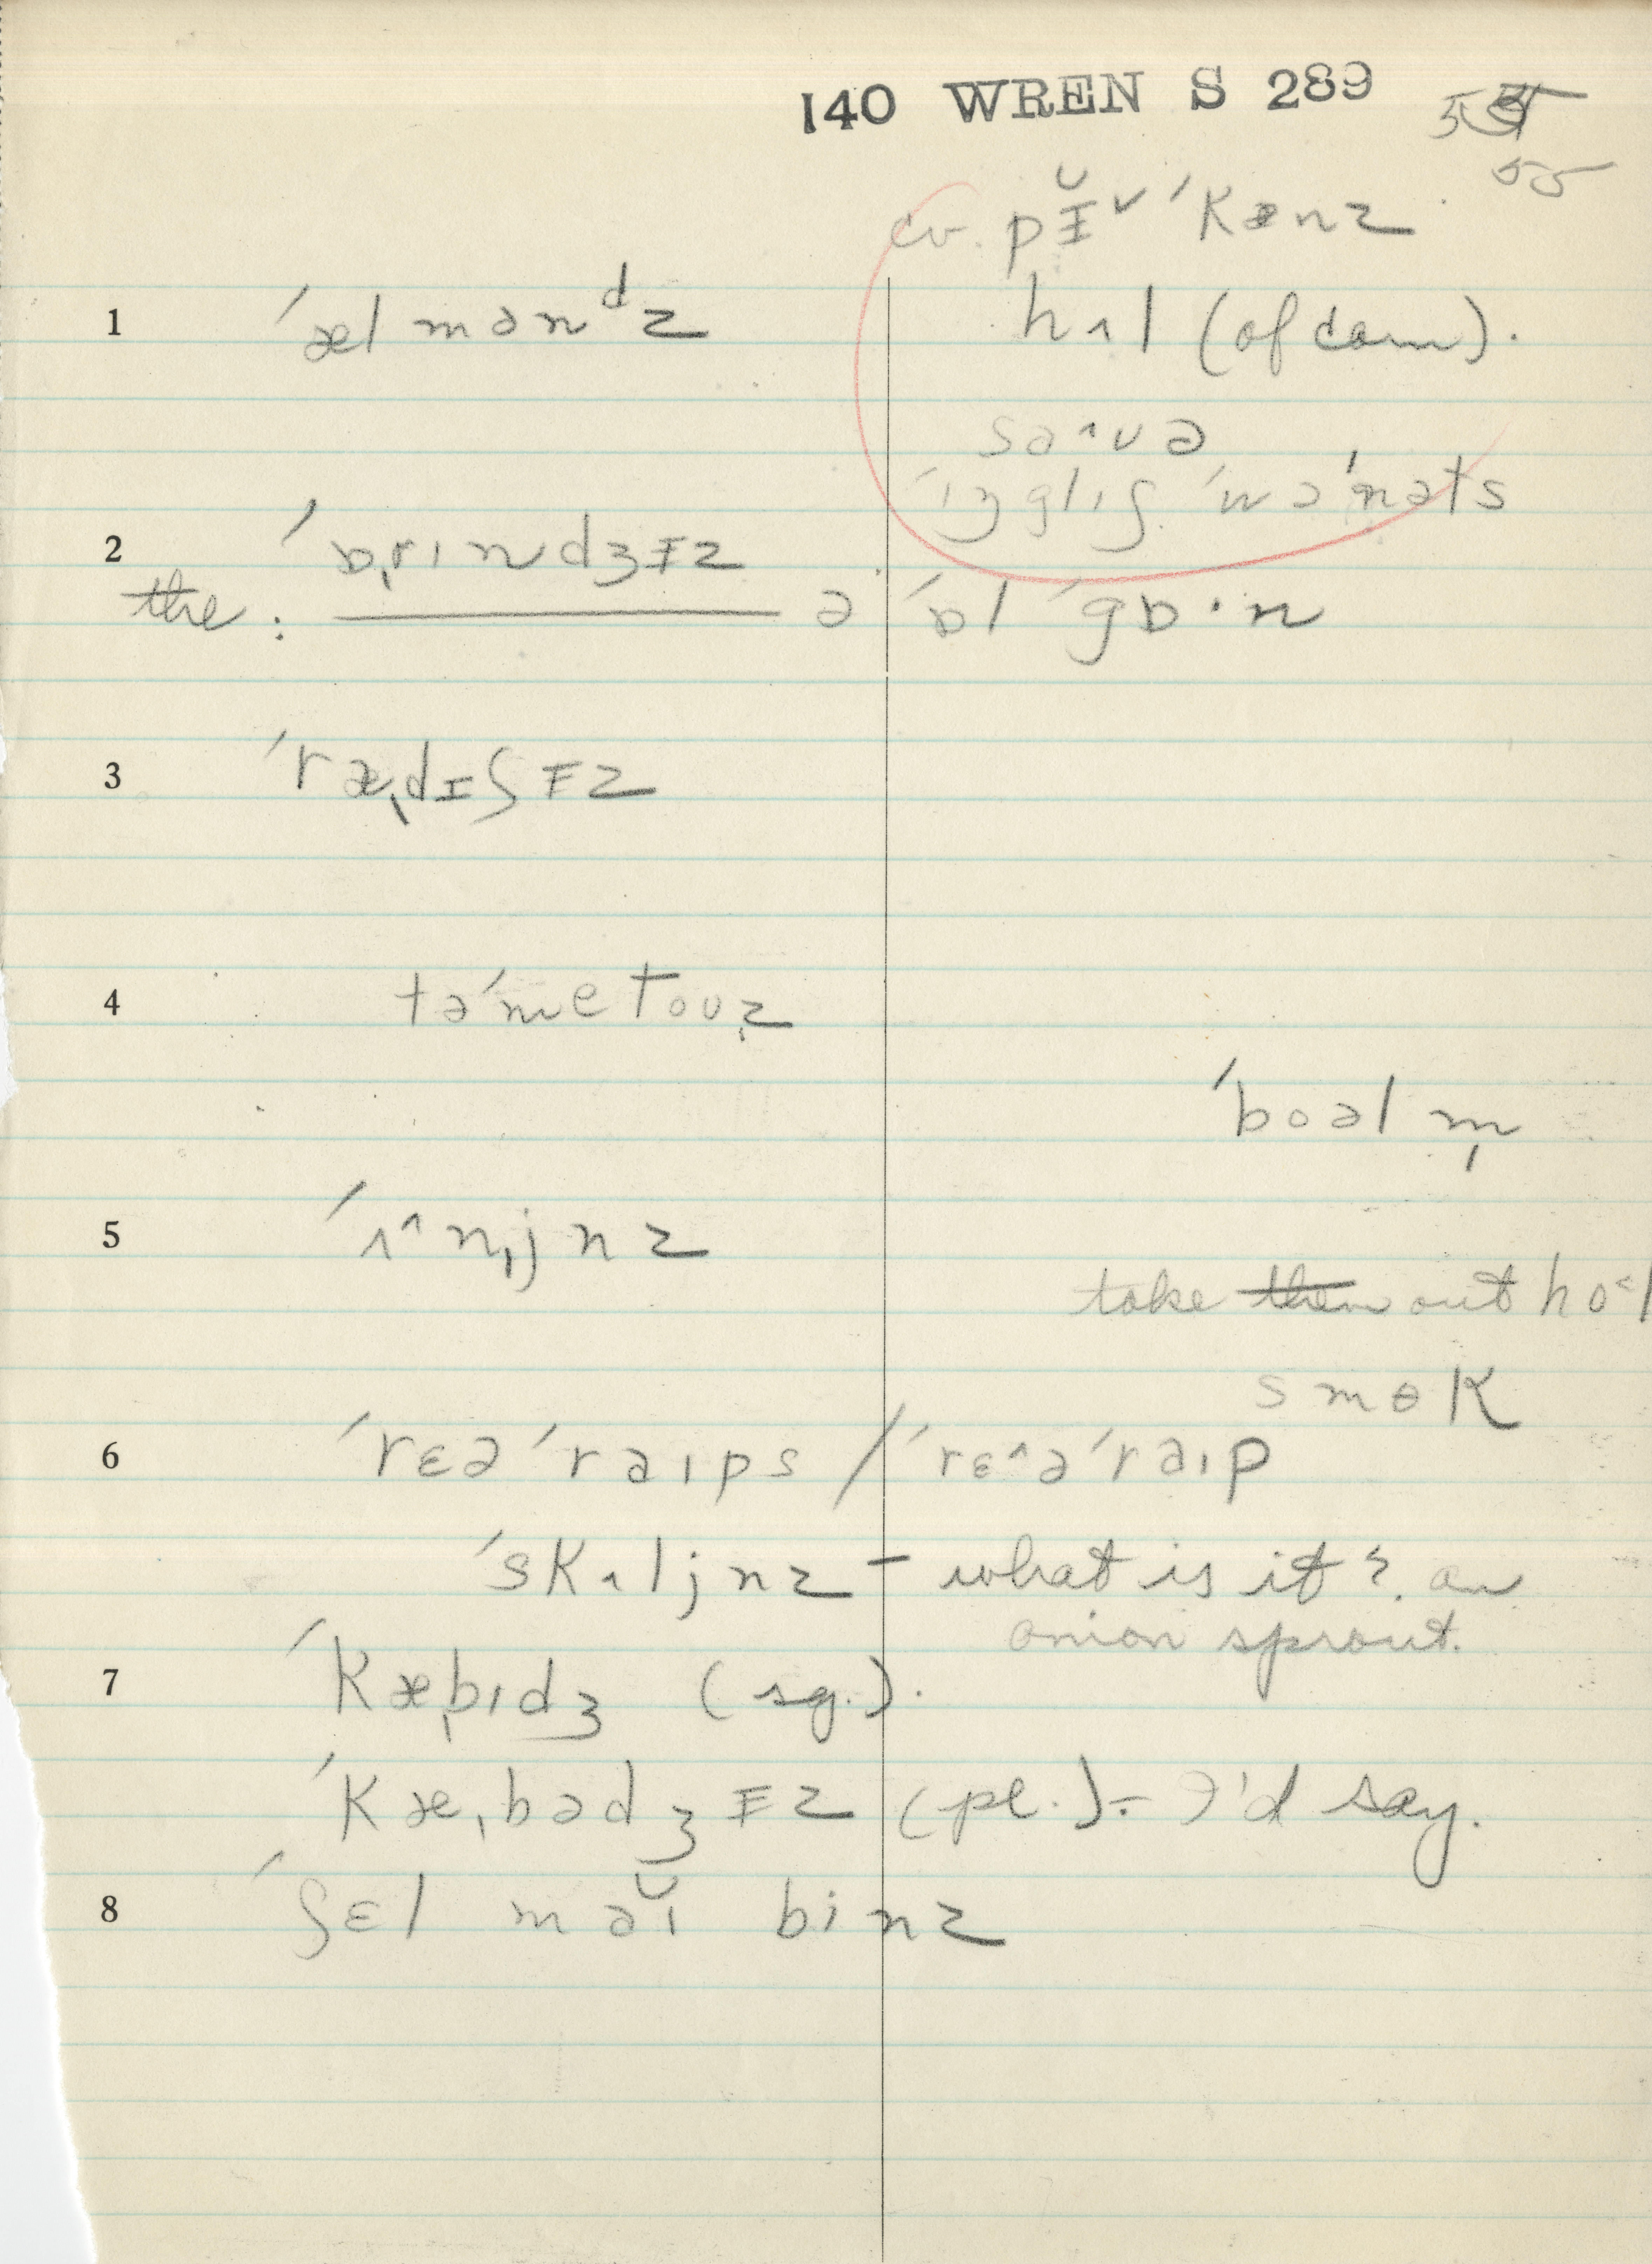 140 WREN S 289
55
cv. pɪ̆˅ ˈkænz
1 ˈælmənᵈz
hʌl (of corn).
sə˄və
ˈɪŋglɪʃ ˈwɔˈnəts
2 ˈɒ̞rɪndʒɪz
the: ə ˈɒl gɒ·n
3 ˈræ̞dɪʃɪz
4 təˈmetouz̥
ˈboəl m̩
5 ˈʌ˄n̩jnz
take them out ho˂l
smɵk
6 ˈrɛəˈrəɪps / ˈrɛ˄əˈrəɪp
ˈskʌljnz – what is it? an
onion sprout.
7 ˈkæ̞bɪdʒ (sg.).
ˈkæ̞bədʒɪz (pl.). – I'd say.
8 ʃɛl məɪ̆ binz